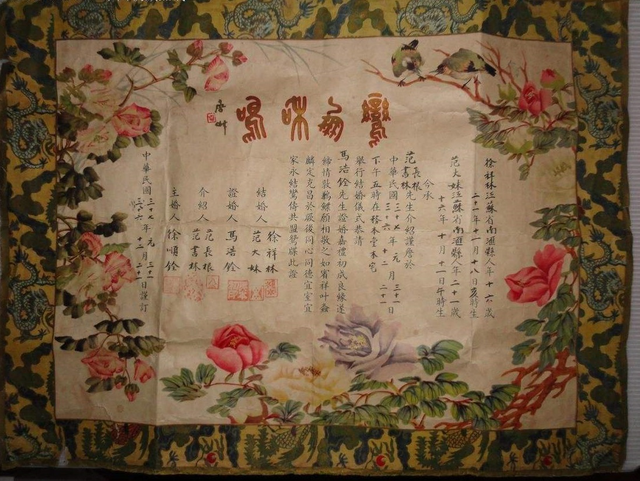 鸞鳳和鳴
徐祥林江蘇省南滙縣人年十六歲
二十二年十一月十八日辰時生
范大妹江蘇省南滙縣人年二十一歲
十六年十月十一日午時生
今承
范長根
范書林先生介紹謹詹於
中華民國三十七年元月三十一日
三十六年十二月二十一
下午五時在務本堂本宅
舉行結婚儀式恭請
馬浩銓先生證婚嘉禮初成良緣遂
締情敦鶼鰈願相敬之如賓祥叶螽
麟定克昌於厥後同心同德宜室宜
家永結鴛侶共盟鴛牒此證
結婚人 徐祥林
范大妹
證婚人 馬浩銓
介紹人 范長根
范書林
主婚人 徐順銓
中華民國三十七年元月三十一日謹訂
三十六 十二 二十一